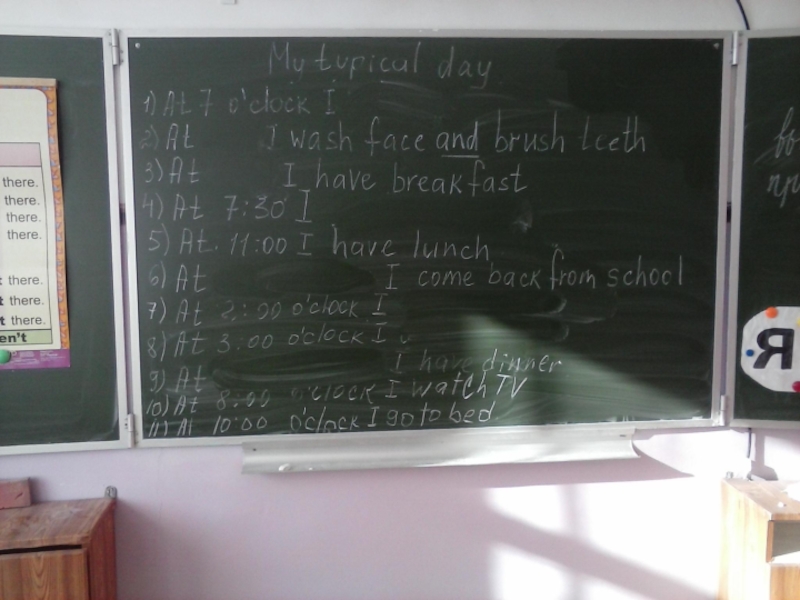 My typical day
1) At 7 o'clock I
2) At I wash face and brush teeth
3) At I have breakfast
4) At 7:30 I
5) At 11:00 I have lunch
6) At I come back from school
7) At 2:00 o'clock I
8) At 3:00 o'clock I
9) At I have dinner
10) At 8:00 o'clock I watch TV
11) At 10:00 o'clock I go to bed
there.
there.
there.
there.
t there.
t there.
t there.
en't
Я